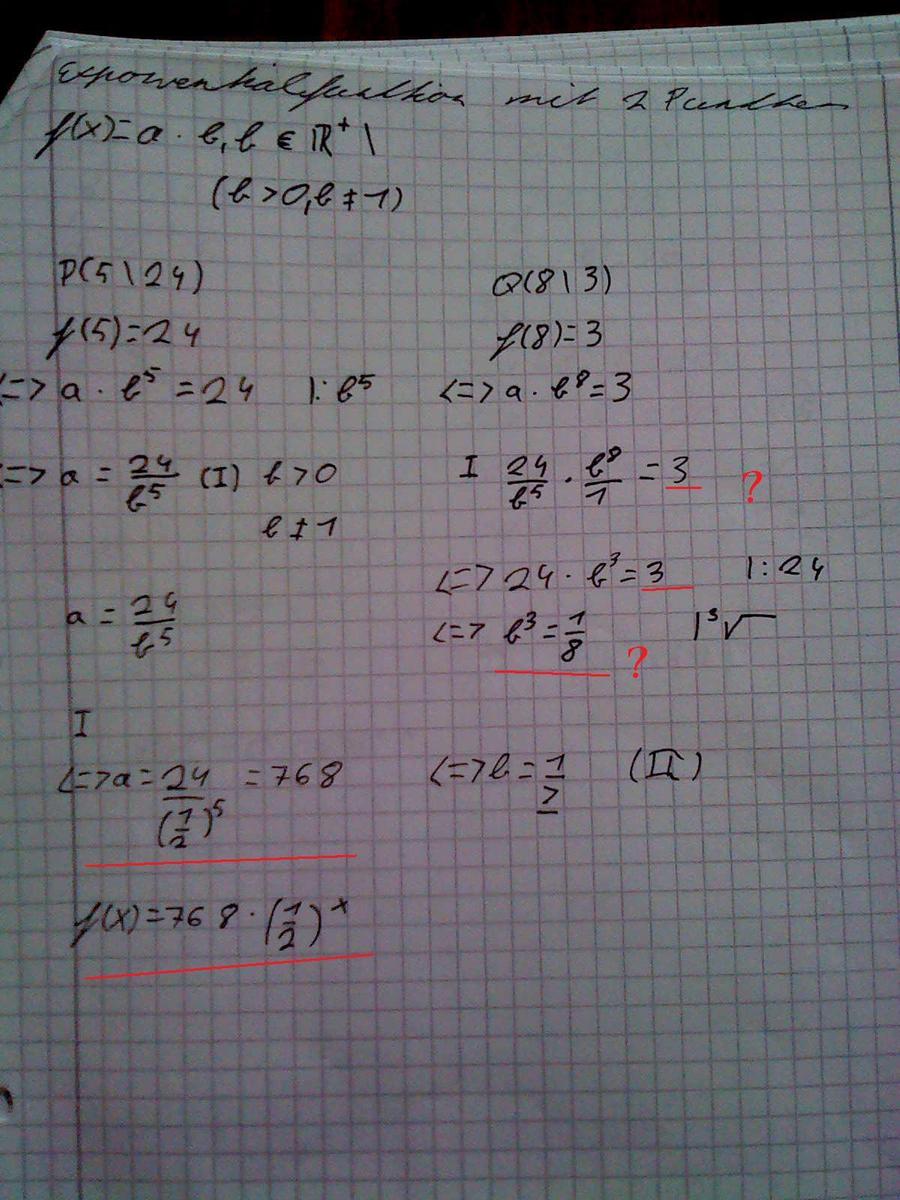 Exponentialfunktion mit 2 Punkten
f(x)=a · b, b ∈ ℝ⁺ \
(b>0, b≠1)
P(5\24) Q(8\3)
f(5)=24 f(8)=3
<=> a · b⁵ = 24 |: b⁵ <=> a · b⁸ = 3
<=> a = 24/b⁵ (I) b>0 I 24/b⁵ · b⁸/1 = 3 ?
b≠1
<=> 24 · b³ = 3 |: 24
a = 24/b⁵ <=> b³ = 1/8 | ³√ ?
I
<=> a = 24/(1/2)⁵ = 768 <=> b = 1/2 (II)
f(x)=768 · (1/2)ˣ